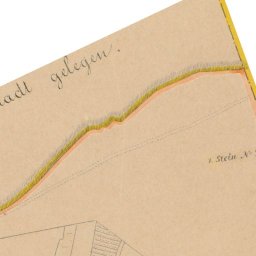 gelegen.
1. Stein N